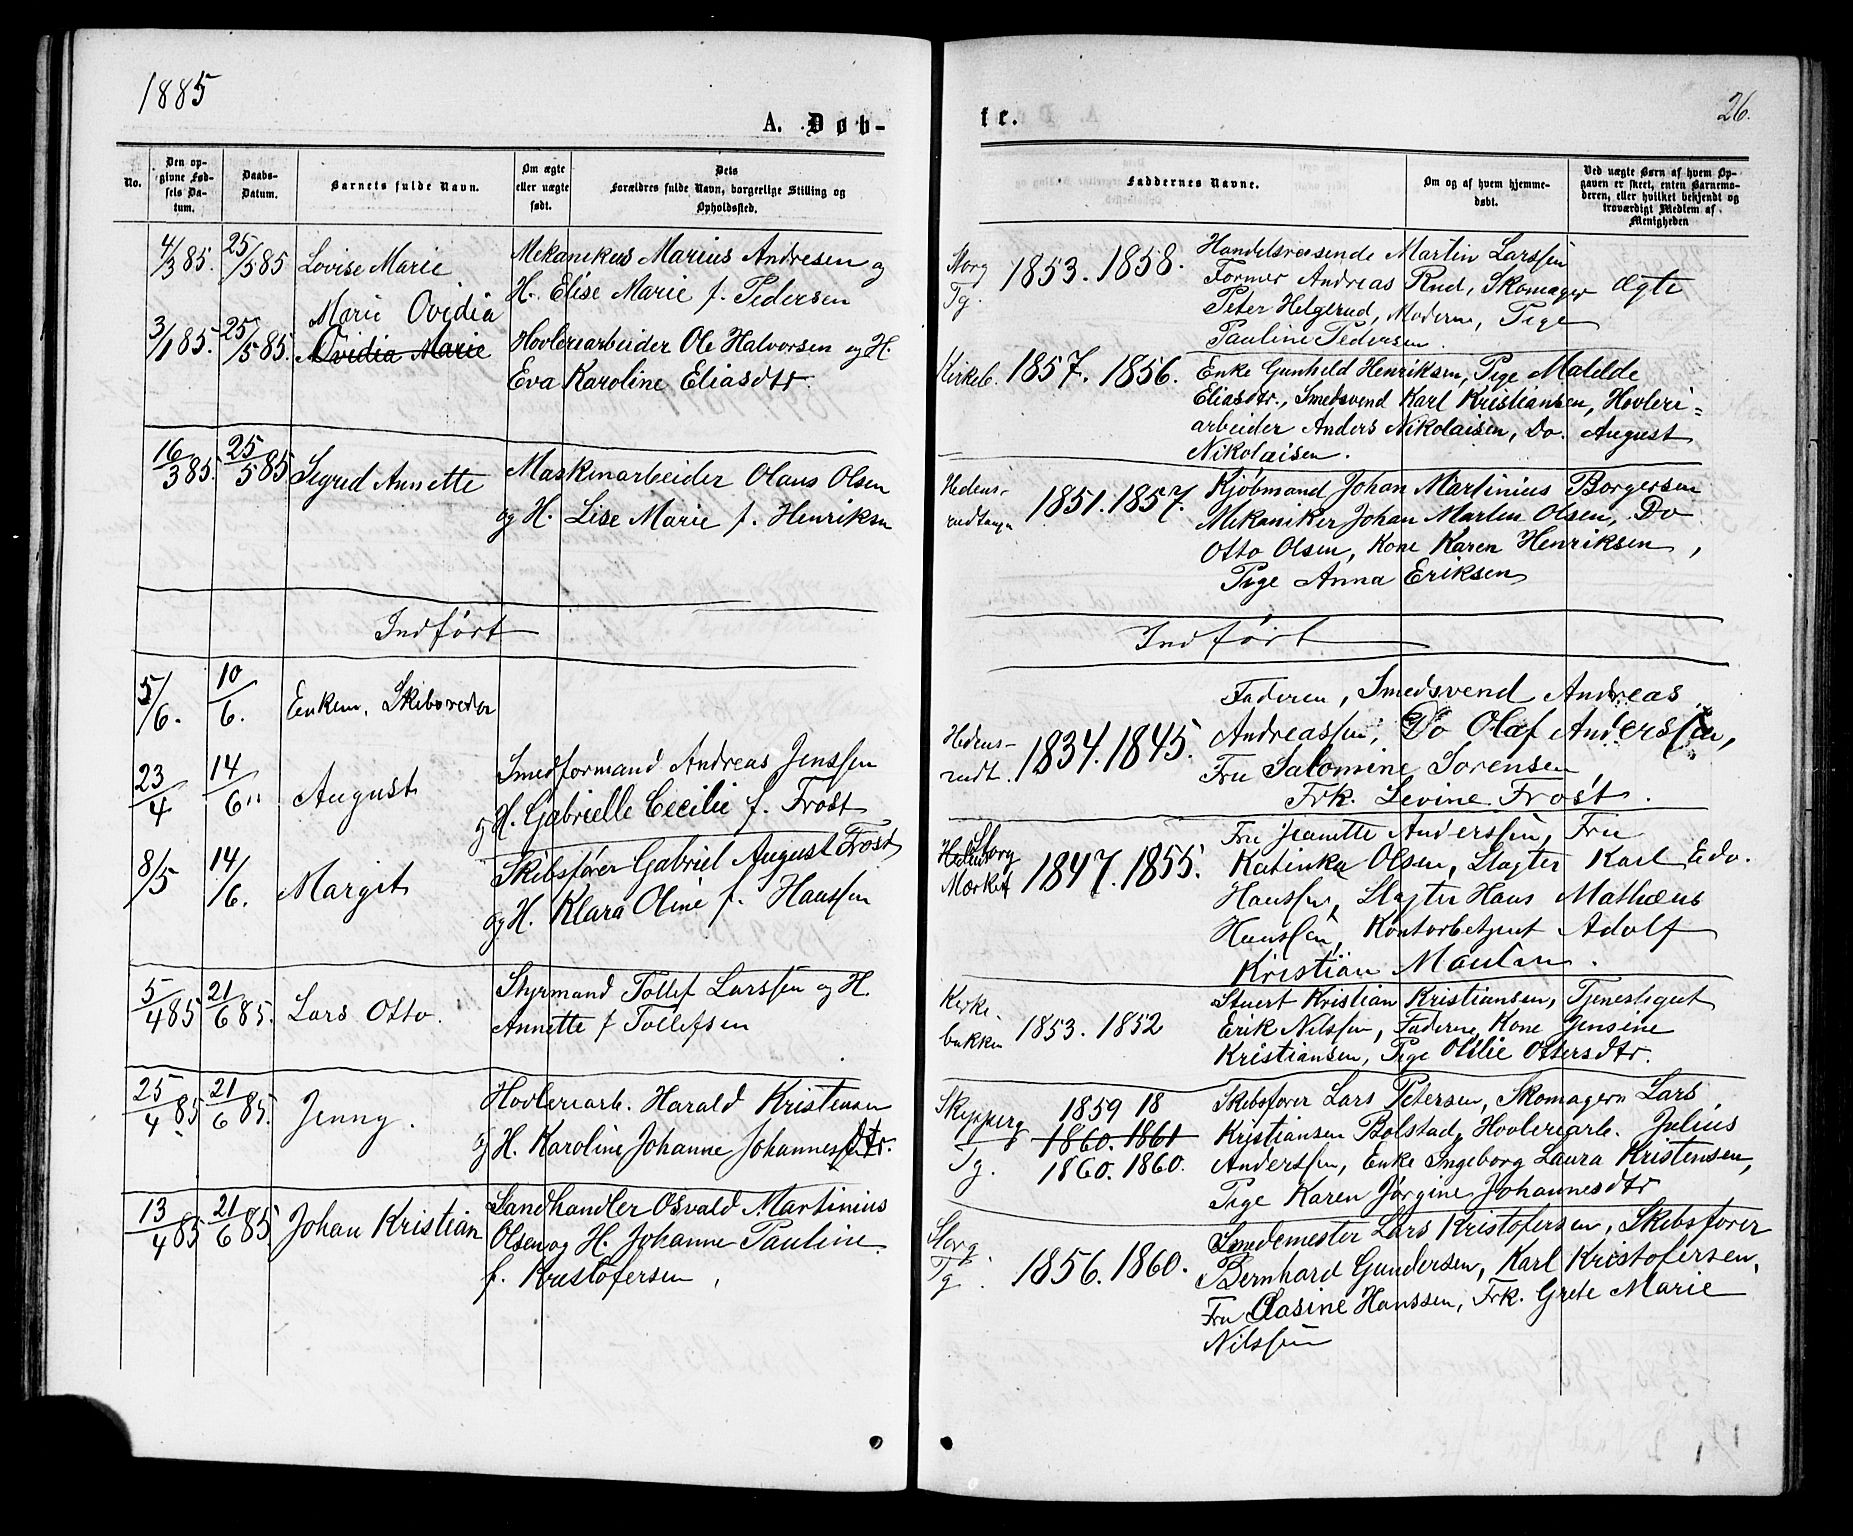 1885
A. Døb-
No.
Den op-
givne Fød-
sels Da-
tum.
Daabs-
Datum.
Barnets fulde Navn.
Om ægte
eller uægte
født.
Dets
Forældres fulde Navn, borgerlige Stilling og
Opholdssted.
4/3 85. 25/5 85 Lovise Marie
Mekanikus Marius Andresen og
H. Elise Marie f. Pedersen
3/1 85. 25/5 85. Marie Ovidia
Ovidia Marie
Hovleriarbeider Ole Halvorsen og H.
Eva Karoline Eliasdtr.
16/3 85. 25/5 85 Sigrid Annette
Maskinarbeider Olaus Olsen
og H. Lise Marie f. Henriksn
Indført
5/6. 10/6.
23/4 14/6 August
Smedformand Andreas Jenssen
og H. Gabrielle Cecilie f. Frost
8/5 14/6. Margit
Skibsfører Gabriel August Frost
og H. Klara Oline f. Hanssen
5/4 85 21/6 85. Lars Otto.
Styrmand Tollef Larssen og H.
Annette f Tollefsen
25/4 85 21/6 85. Jenny.
Hovleriarb. Harald Kristensen
og H. Karoline Johanne Johannesdtr.
13/4 85 21/6 85. Johan Kristian
Sandhandler Osvald Martinius
Olsen og H. Johanne Pauline
f. Kristofersen
te.
26.
Faddernes Navne.
Om og af hvem hjemme-
døbt.
Ved uægte Børn af hvem Op-
gaven er skeet, enten Barnemo-
deren, eller hvilket bekjendt og
troværdigt Medlem af
Menigheden
Storg
Tg.
1853. 1858.
Handelsreisende Martin Larssen
Former Andreas Rud, Skomager
Peter Helgerud, Moderen, Pige
Pauline Pedersen.
ægte
Kirkeb. 1857. 1856.
Enke Gunhild Henriksen, Pige Matilde
Eliasdtr., Smedsvend Karl Kristiansen, Hovleri=
arbeider Anders Nikolaisen, Do. August
Nikolaisen.
Hedens-
rudtangn
1851. 1857.
Kjøbmand Johan Martinius Borgersen
Mekaniker Johan Martin Olsen, Do
Otto Olsen, Kone Karen Henriksen,
Pige Anna Eriksen
Indført
Hedens-
rudt.
1834. 1845.
Faderen, Smedsvend Andreas
Andreassen, Do Olaf Anderssen,
Fru Salomine Sorensen
Frk. Levine Frost.
Storg
Mærket
1847. 1855.
Fru Jeanette Anderssen, Fru
Katinka Olsen, Slagter Karl Edv.
Hanssen, Slagter Hans Mathæus
Hanssen, Kontorbetjent Adolf
Kristian Maulan.
Kirke-
bakken
1853. 1852
Stuert Kristian Kristiansen, Tjenestegut
Erik Nilssen, Faderne, Kone Jensine
Kristiansen, Pige Otilie Ottersdtr.
Skypperg
Tg.
1859 18
1860. 1861
1860. 1860.
Skibsfører Lars Petersen, Skomagern Lars
Kristiansen Bolstad, Hovleriarb. Julius
Anderssen, Enke Ingeborg Laura Kristensen,
Pige Karen Jørgine Johannesdtr
Storg.
Tg.
1856. 1860.
Smedemester Lars Kristofersen, Skibsfører
Bernhard Gundersen, Karl Kristofersen,
Fru Olasine Hanssen, Frk. Grete Marie
Nilssen